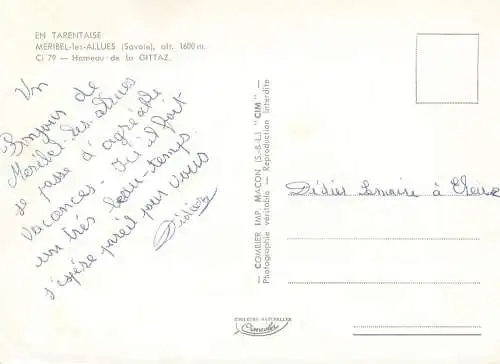 EN TARENTAISE
MERIBEL-les-ALLUES (Savoie), alt. 1600 m.
Ci 79 — Hameau de la GITTAZ.
Un
Bonjour de
Meribel-les-allues
je passe d'agréable
vacances - Ici il fait
un très beau-temps.
j'espère pareil pour vous
Didier
COMBIER IMP. MACON (S.-&-L.) "CIM"
Photographie véritable — Reproduction interdite
Didier Lemaire à
COULEURS NATURELLES
Cimcolor